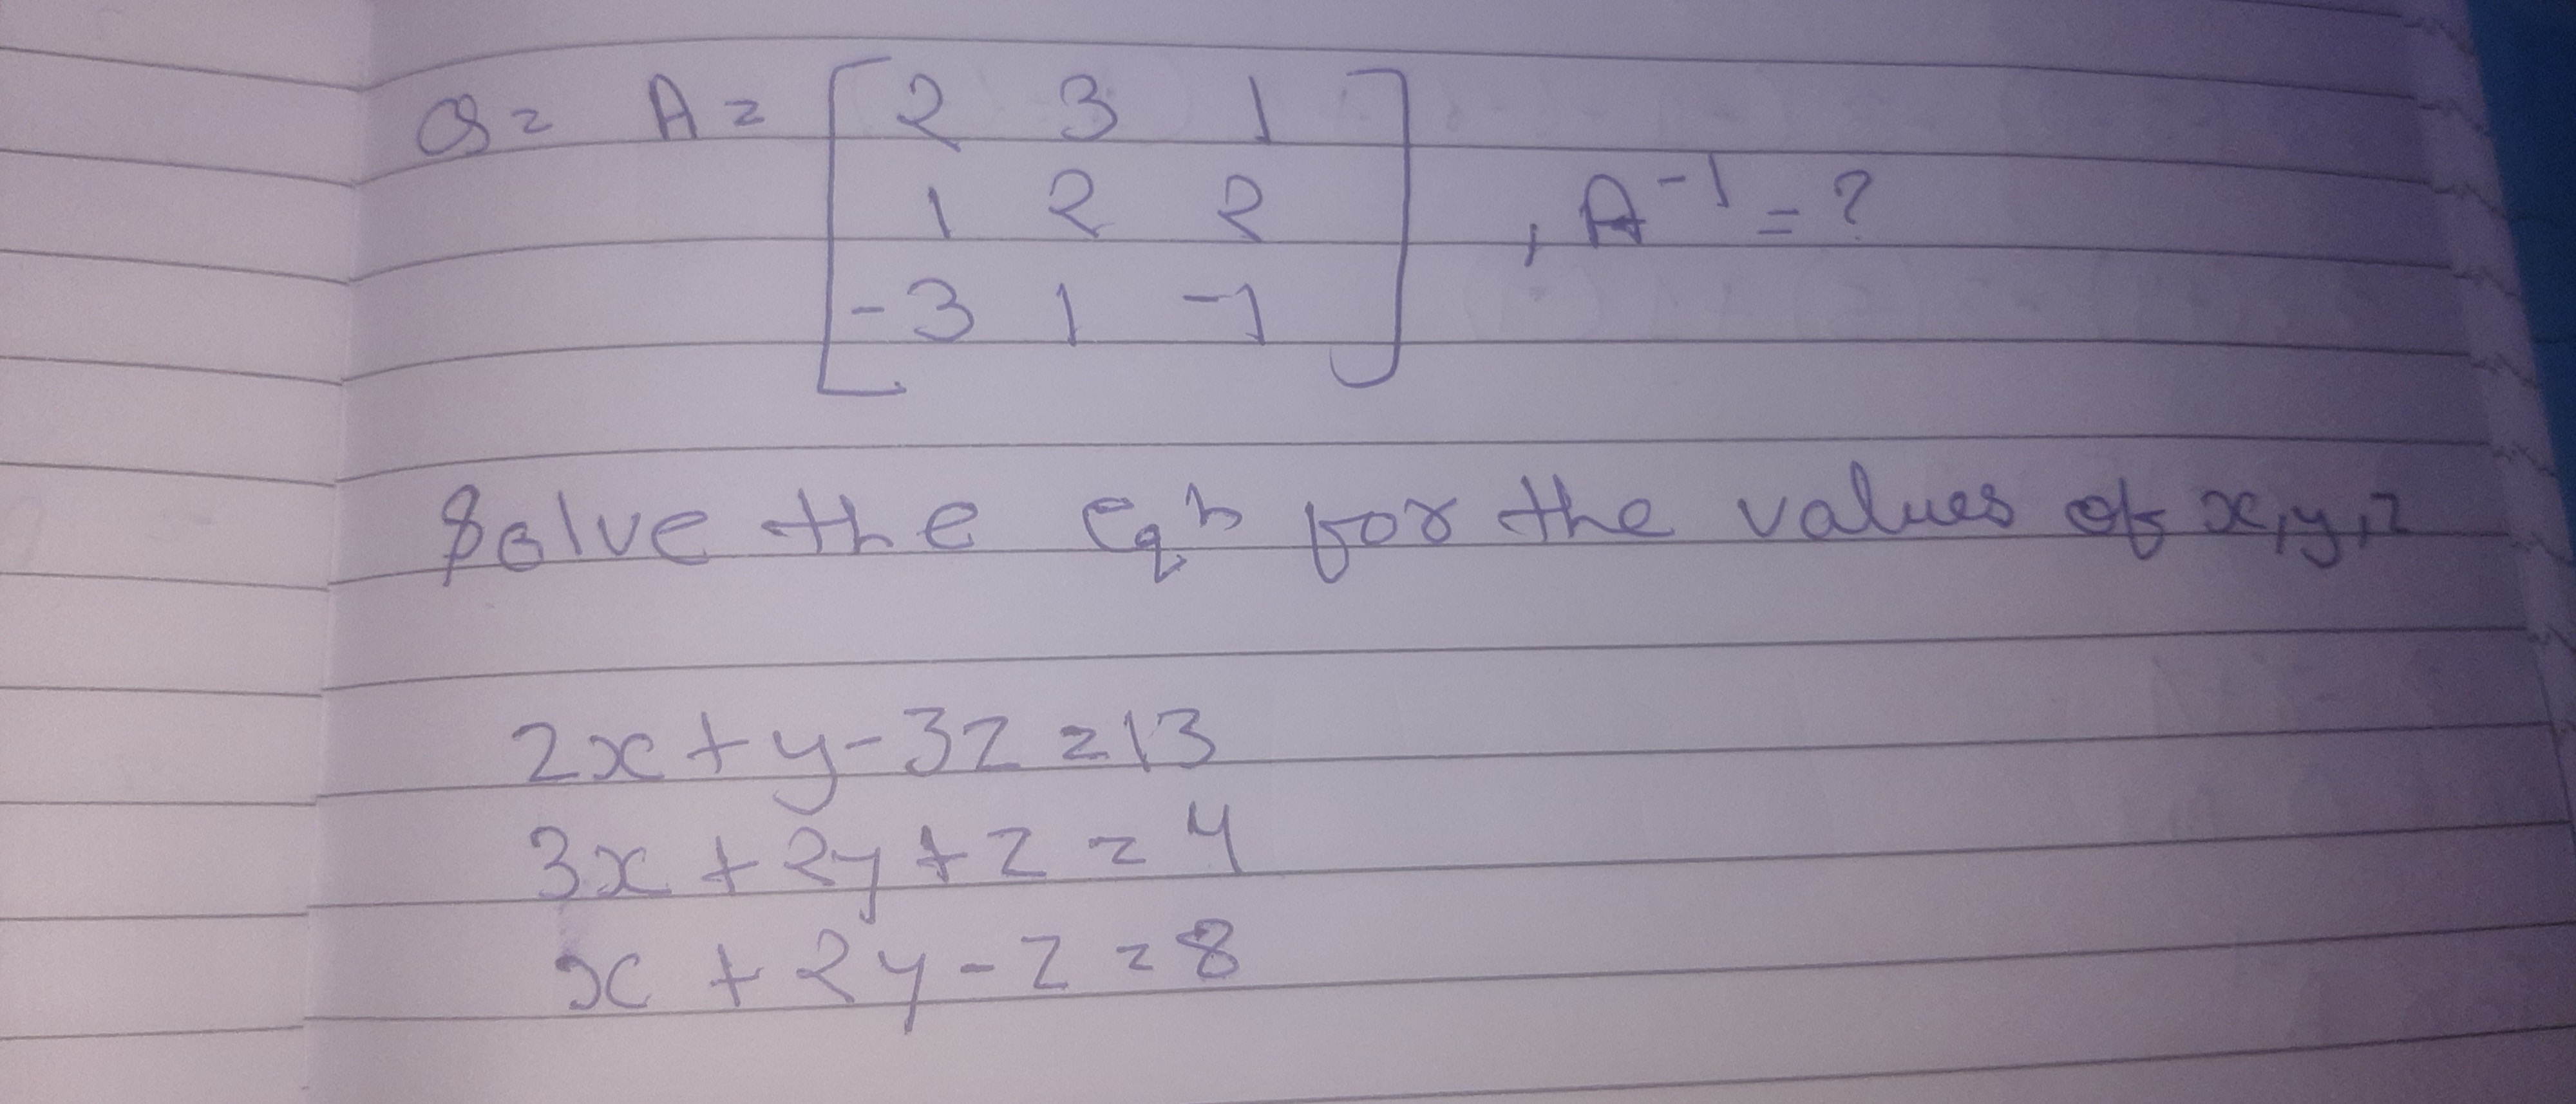 Q = A = [2 3 1
1 2 2 , A⁻¹ = ?
-3 1 -1]
Solve the eqn for the values of x, y, z
2x + y - 3z = 13
3x + 2y + z = 4
x + 2y - z = 8